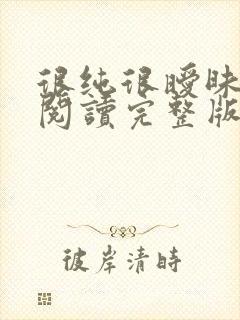 很純很曖昧
閱讀完整版
彼岸清時